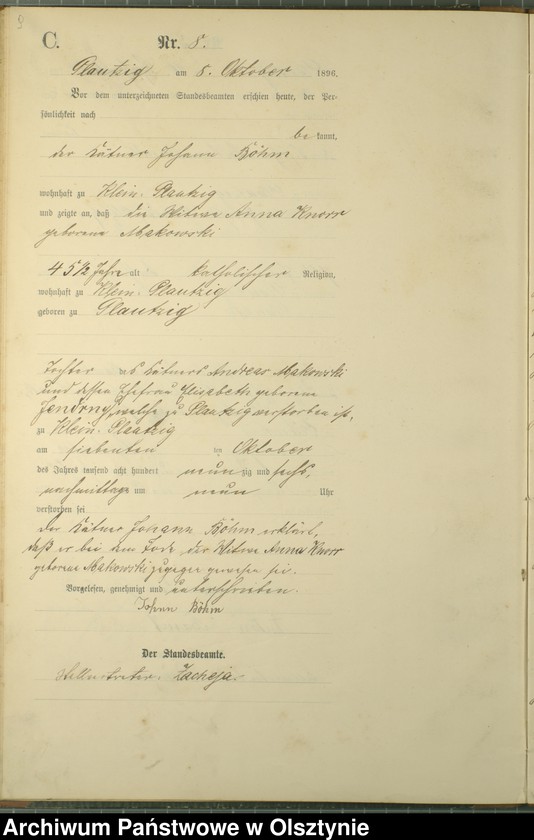 C.
Nr. 8.
Plautzig am 8. Oktober 1896.
Vor dem unterzeichneten Standesbeamten erschien heute, der Per-
sönlichkeit nach
be kannt,
der Kätner Johann Böhm
wohnhaft zu Klein-Plautzig
und zeigte an, daß die Witwe Anna Knorr
geborene Makowski
45½ Jahre alt katholischer Religion,
wohnhaft zu Klein-Plautzig
geboren zu Plautzig
Tochter des Kätners Andreas Makowski
und dessen Ehefrau Elisabeth geborene
welche zu Plautzig verstorben ist,
zu Klein-Plautzig
am siebenten ten Oktober
des Jahres tausend acht hundert neun zig und sechs,
nachmittags um neun Uhr
verstorben sei
Der Kätner Johann Böhm erklärt,
daß er bei dem Tode der Witwe Anna Knorr
geborene Makowski zugegen gewesen sei.
Vorgelesen, genehmigt und unterschrieben.
Johann Böhm
Der Standesbeamte.
Stellvertreter. Zacheja
Archiwum Państwowe w Olsztynie